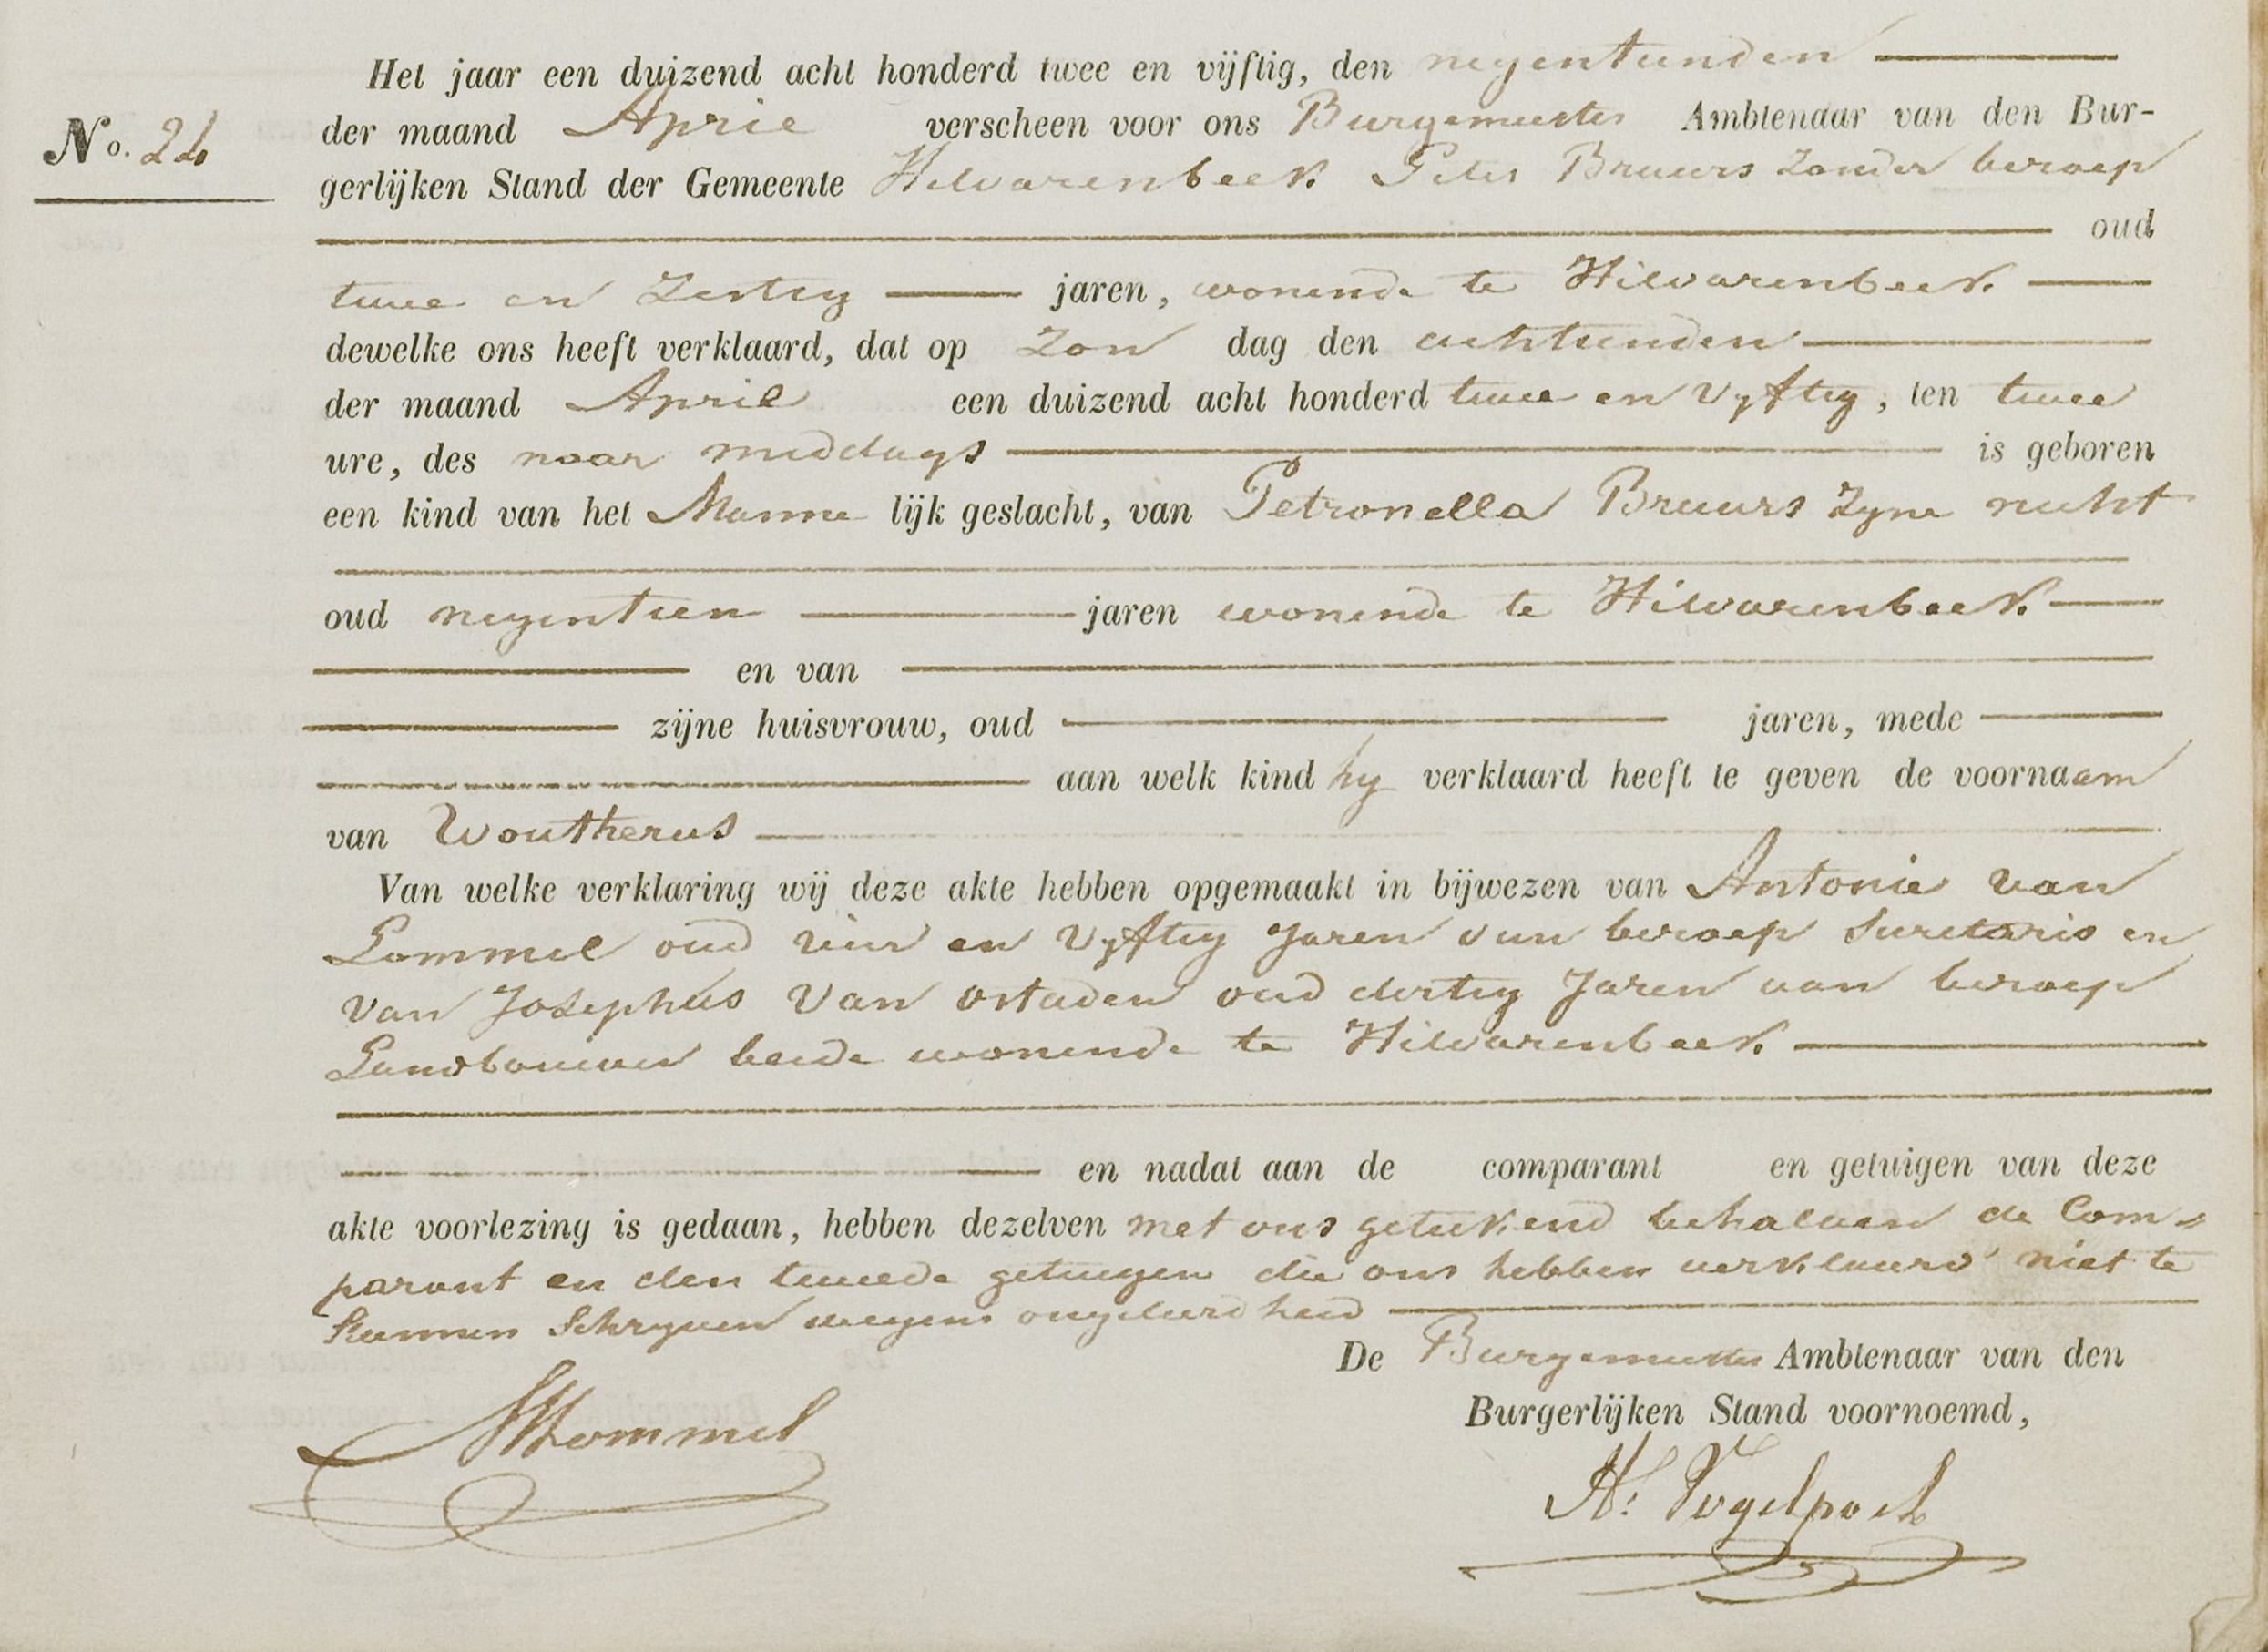 Het jaar een duizend acht honderd twee en vijftig, den negentienden
No. 24
der maand April verscheen voor ons Burgemeester Ambtenaar van den Bur-
gerlijken Stand der Gemeente Hilvarenbeek Peter Bruurs Zonder beroep
oud
twee en Zestig jaren, wonende te Hilvarenbeek
dewelke ons heeft verklaard, dat op Zon dag den achttienden
der maand April een duizend acht honderd twee en vyftig, ten twee
ure, des naar middags is geboren
een kind van het Manne lijk geslacht, van Petronella Bruurs Zyne nicht
oud negentien jaren wonende te Hilvarenbeek
en van
zijne huisvrouw, oud jaren, mede
aan welk kind hy verklaard heeft te geven de voornaam
van Woutherus
Van welke verklaring wij deze akte hebben opgemaakt in bijwezen van Antonie van
Lommel oud vier en Vyftig Jaren van beroep Secretaris en
van Josephus Van ostaden oud dertig Jaren van beroep
Landbouwer beide wonende te Hilvarenbeek
en nadat aan de comparant en getuigen van deze
akte voorlezing is gedaan, hebben dezelven met ons geteekend behalven de Com-
parant en den tweede getuigen die ons hebben verklaard niet te
kunnen Schryven wegens ongeleerdheid
De Burgemeester Ambtenaar van den
Burgerlijken Stand voornoemd,
Lommel
H. Vogelpoel